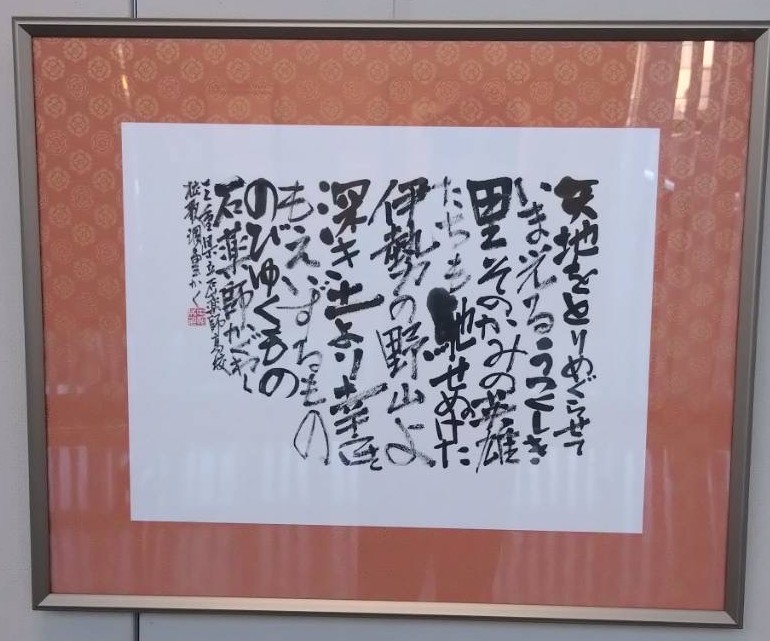 天地をとりめぐらせて
いま光るうつくしき
里そのかみの英雄
たちも馳せぬけた
伊勢の野山よ
深き土より幸と
もえいずるもの
のびゆくもの
石薬師かがやく
三重県立石薬師高校
校歌 かく